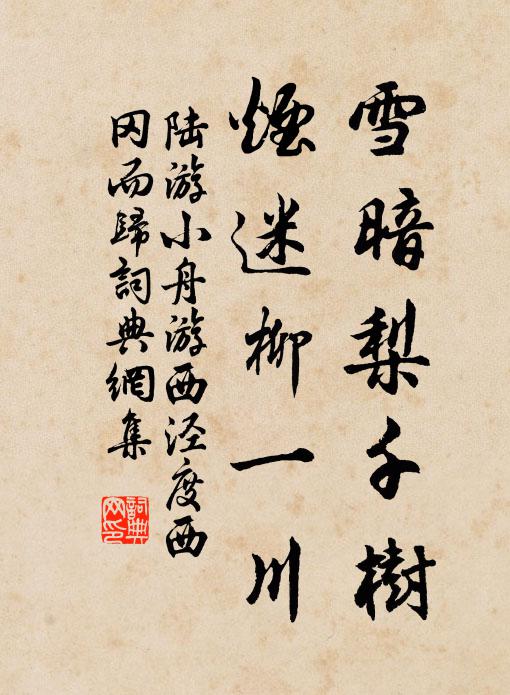 雪暗梨千樹
煙迷柳一川
陆游小舟游西泾度西
冈而歸詞典網集
詞典
网印